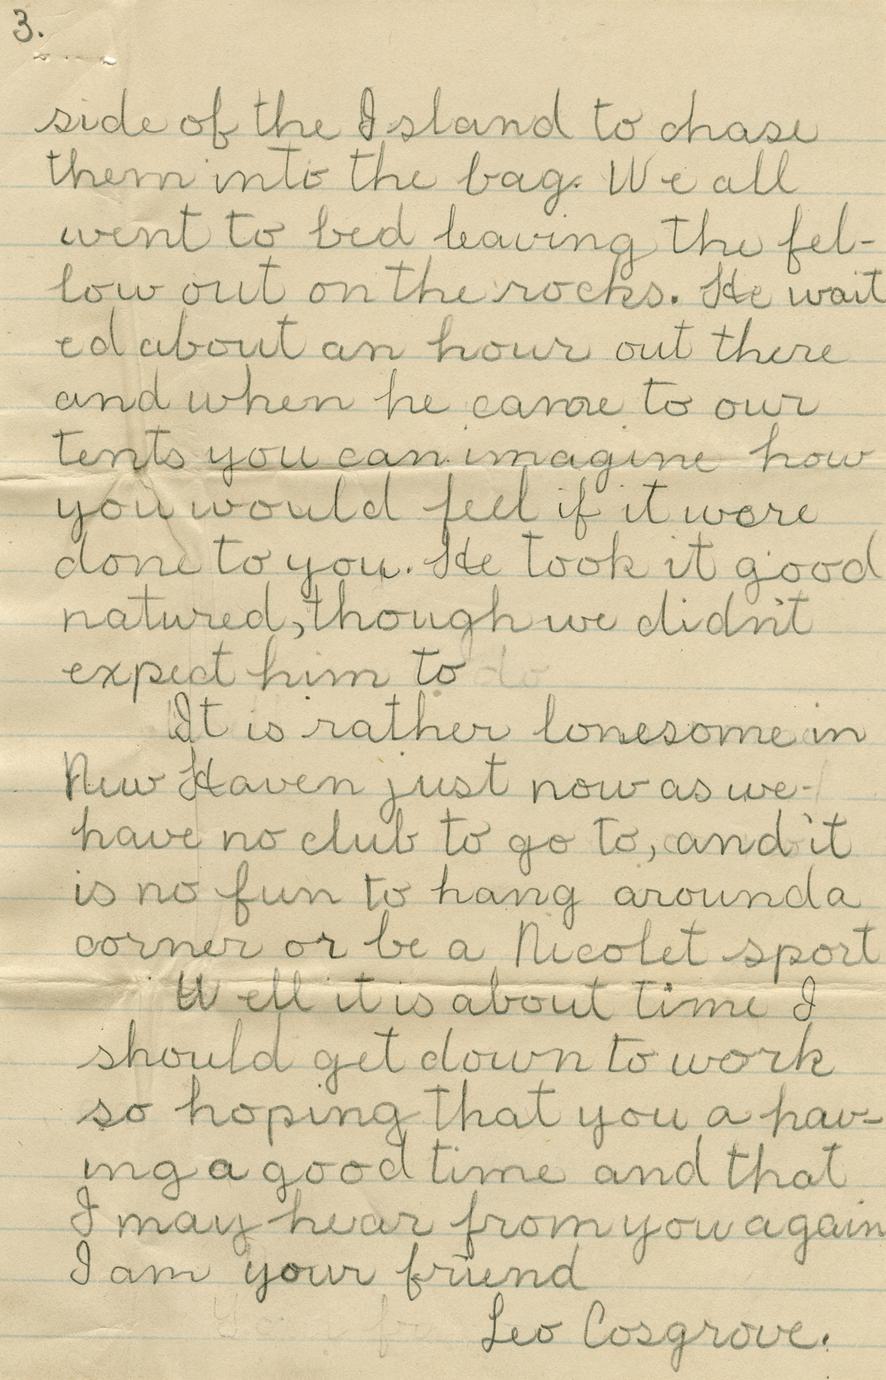 3.
side of the Island to chase
them into the bag. We all
went to bed leaving the fel-
low out on the rocks. He wait
ed about an hour out there
and when he came to our
tents you can imagine how
you would feel if it were
done to you. He took it good
natured, though we didn't
expect him to do
It is rather lonesome in
New Haven just now as we
have no club to go to, and it
is no fun to hang around a
corner or be a Nicolet sport
Well it is about time I
should get down to work
so hoping that you a hav-
ing a good time and that
I may hear from you again
I am your friend
Leo Cosgrove.